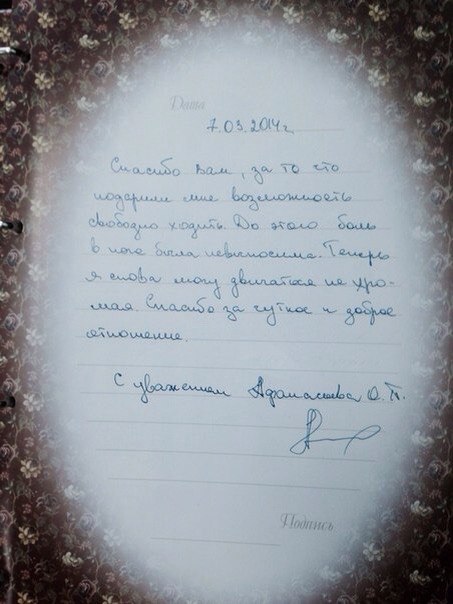 Дата
7.03.2014г.
Спасибо вам, за то что
подарили мне возможность
свободно ходить. До этого боль
в ноге была невыносима. Теперь
я снова могу двигаться не хро-
мая. Спасибо за чуткое и доброе
отношение.
С уважением Афанасьева О.П.
Подпись